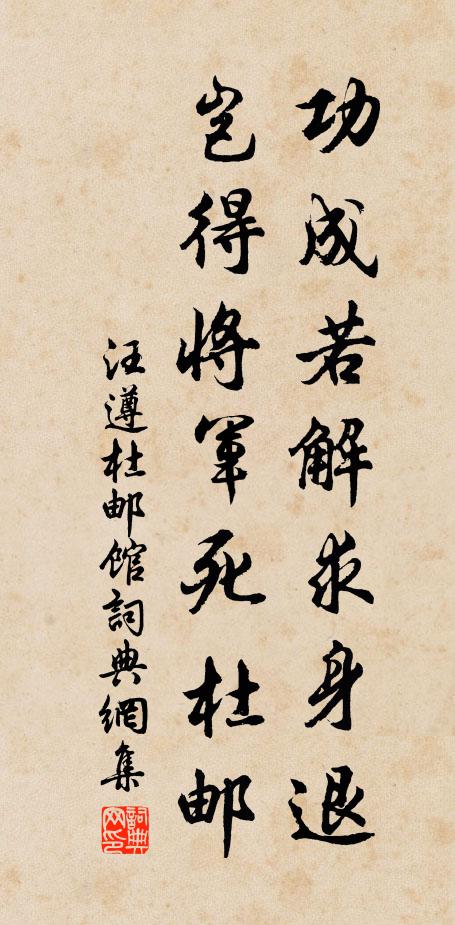 功成若解求身退
岂得将军死杜邮
汪遵杜邮馆詞典網集
詞典网印